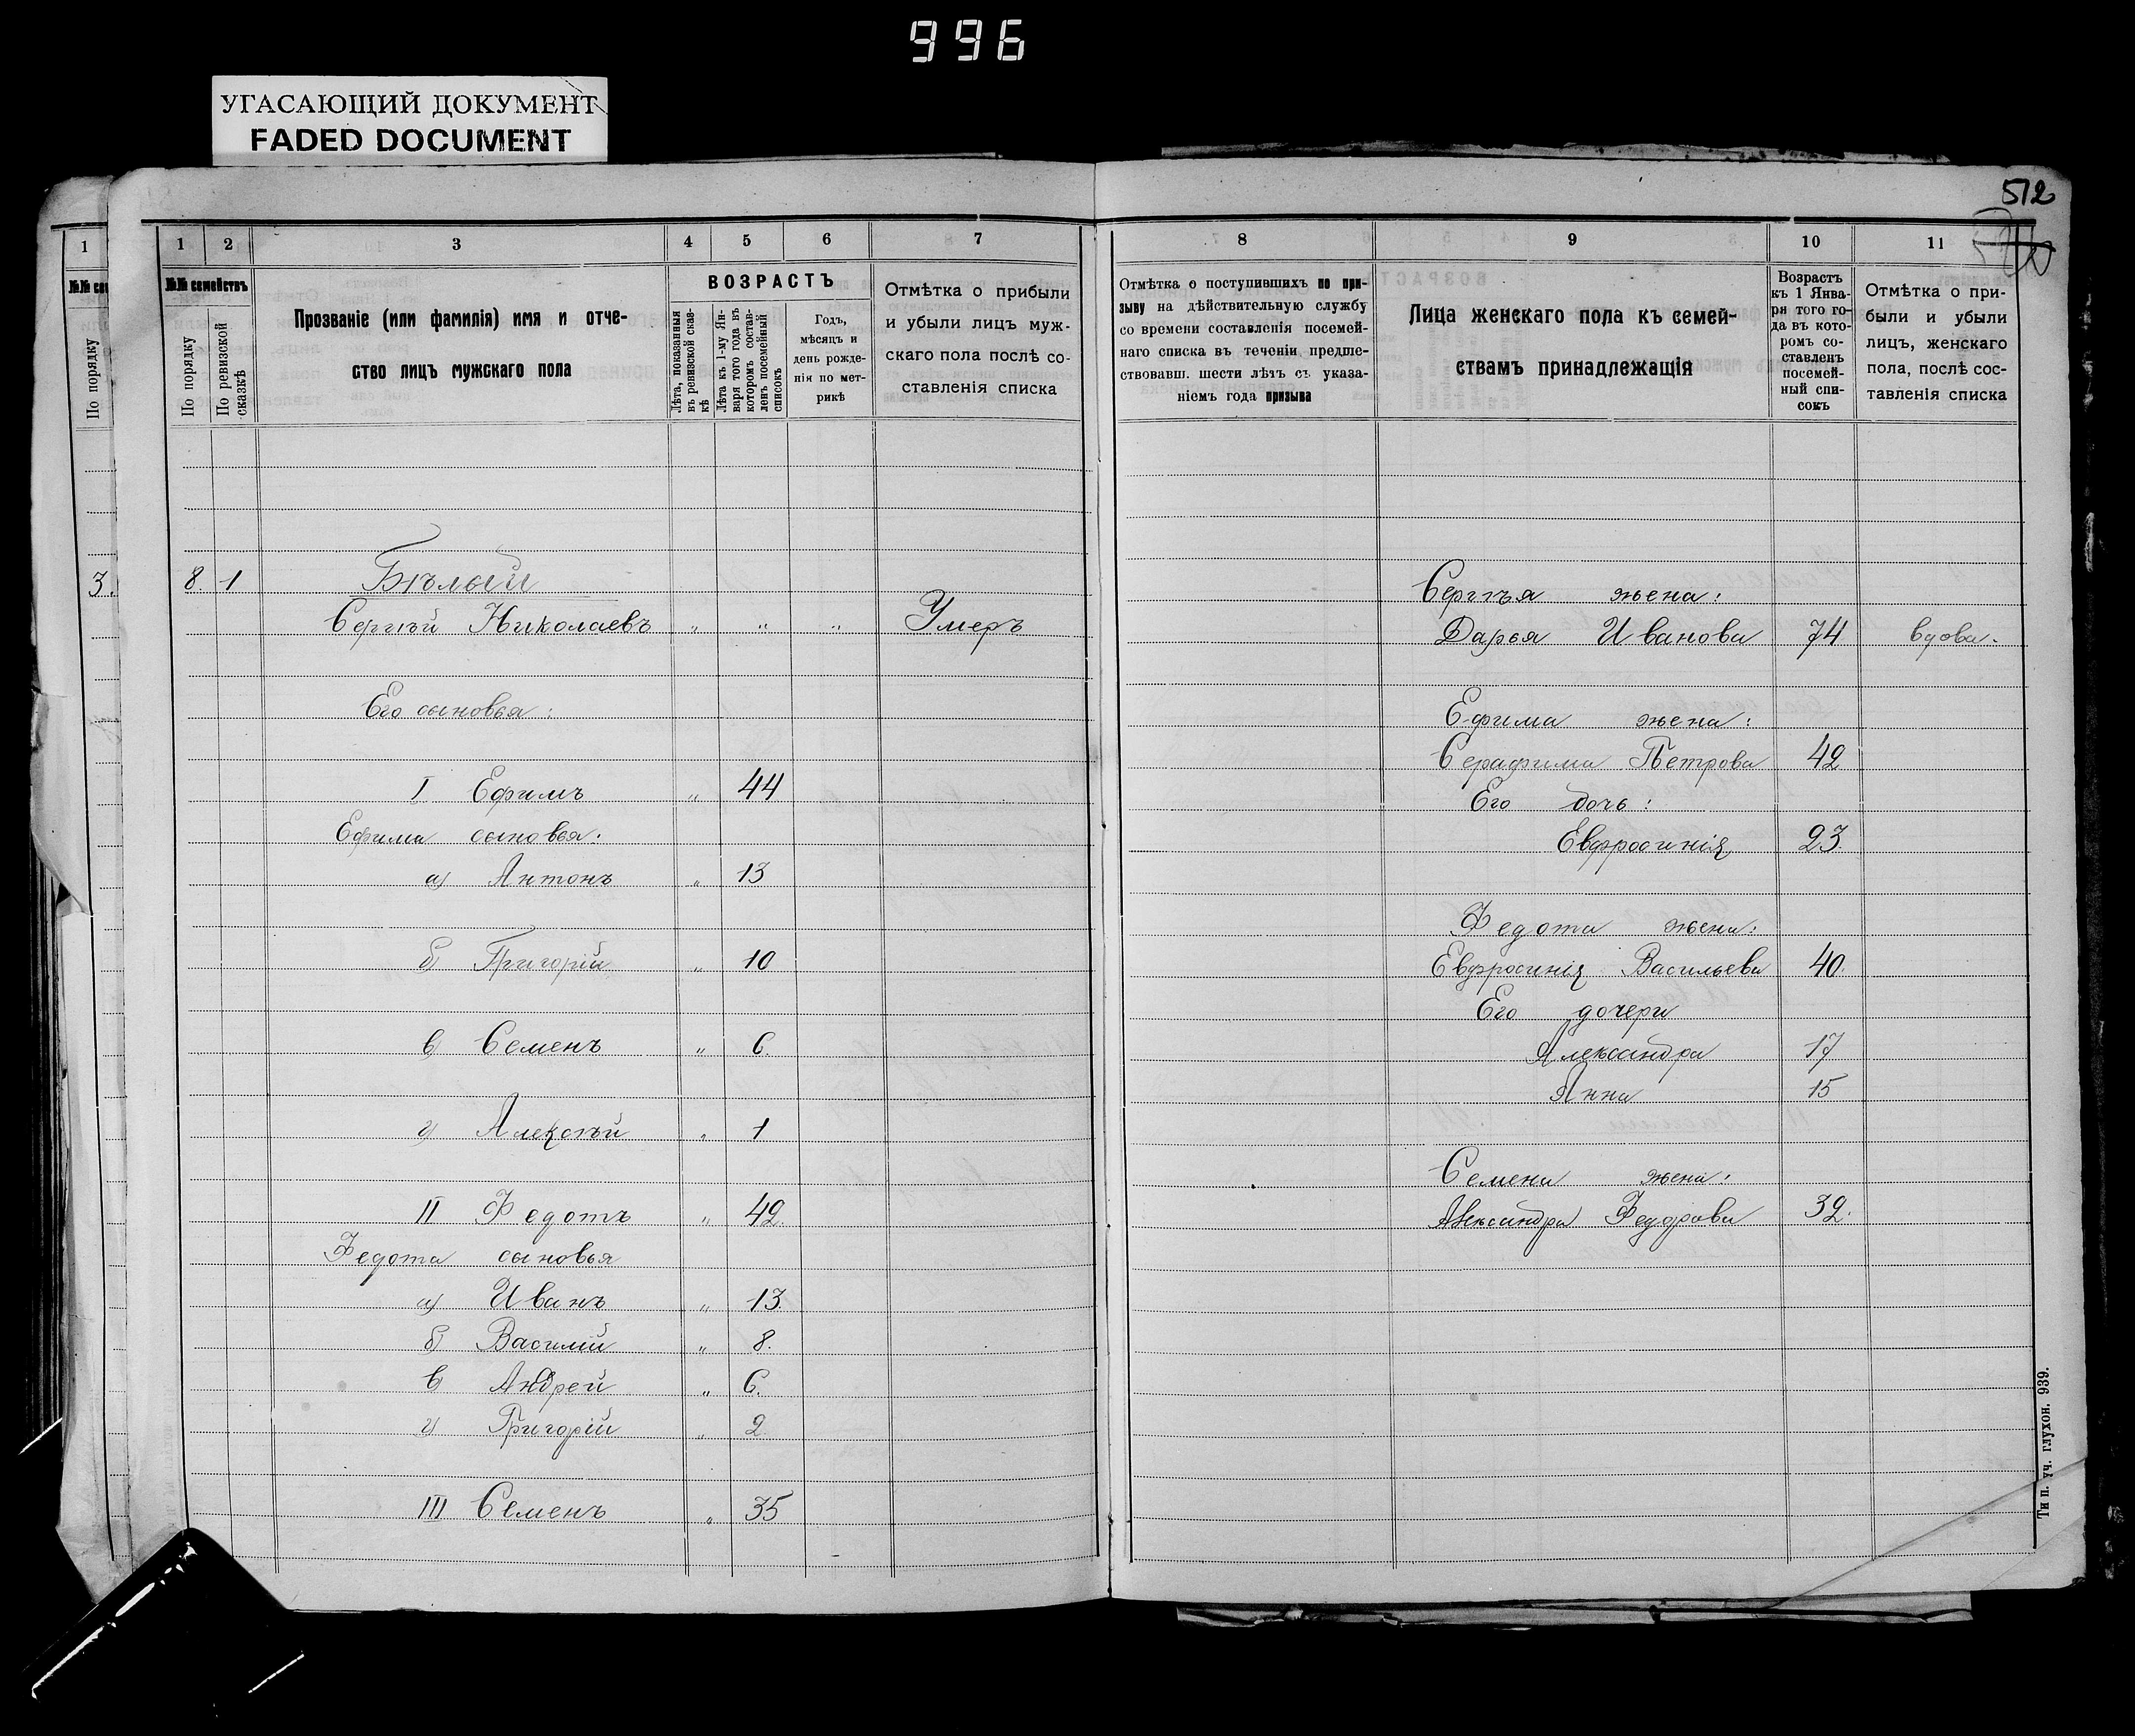 996
УГАСАЮЩИЙ ДОКУМЕНТ
FADED DOCUMENT
512
1
№№ сем
По порядку
3.
1 2 3 4 5 6 7
№№ семействъ
По порядку
По ревизской сказкѣ
Прозваніе (или фамилія) имя и отче-
ство лицъ мужскаго пола
ВОЗРАСТЪ
Лѣта, показанныя
въ ревизской сказ-
кѣ
Лѣта къ 1-му Ян-
варя того года въ
которомъ состав-
ленъ посемейный
списокъ
Годъ,
мѣсяцъ и
день рожде-
нія по мет-
рикѣ
Отмѣтка о прибыли
и убыли лицъ муж-
скаго пола послѣ со-
ставленія списка
8. 1 Бѣлый
Сергѣй Николаевъ " " " Умеръ
Его сыновья:
I Ефимъ " 44
Ефима сыновья:
а) Антонъ " 13
б) Григорій " 10
в) Семенъ " 6.
г) Алексѣй " 1
II Федотъ " 42.
Федота сыновья
а) Иванъ " 13.
б) Василій " 8.
в) Андрей " 6.
г) Григорій " 2
III Семенъ " 35
8 9 10 11
Отмѣтка о поступившихъ по при-
зыву на дѣйствительную службу
со времени составленія посемей-
наго списка въ теченіи предше-
ствовавш. шести лѣтъ съ указа-
ніемъ года призыва
Лица женскаго пола къ семей-
ствамъ принадлежащія
Возрастъ
къ 1 Янва-
ря того го-
да въ кото-
ромъ со-
ставленъ
посемей-
ный спи-
сокъ
Отмѣтка о при-
были и убыли
лицъ, женскаго
пола, послѣ сос-
тавленія списка
Сергѣя жена:
Дарья Иванова 74 вдова.
Ефима жена:
Серафима Петрова 42
Его дочь:
Евфросинія 23.
Федота жена:
Евфросинія Васильева 40.
Его дочери
Александра 17
Анна 15
Семена жена:
Александра Федорова 32.
Ти п. уч. глухон. 939.